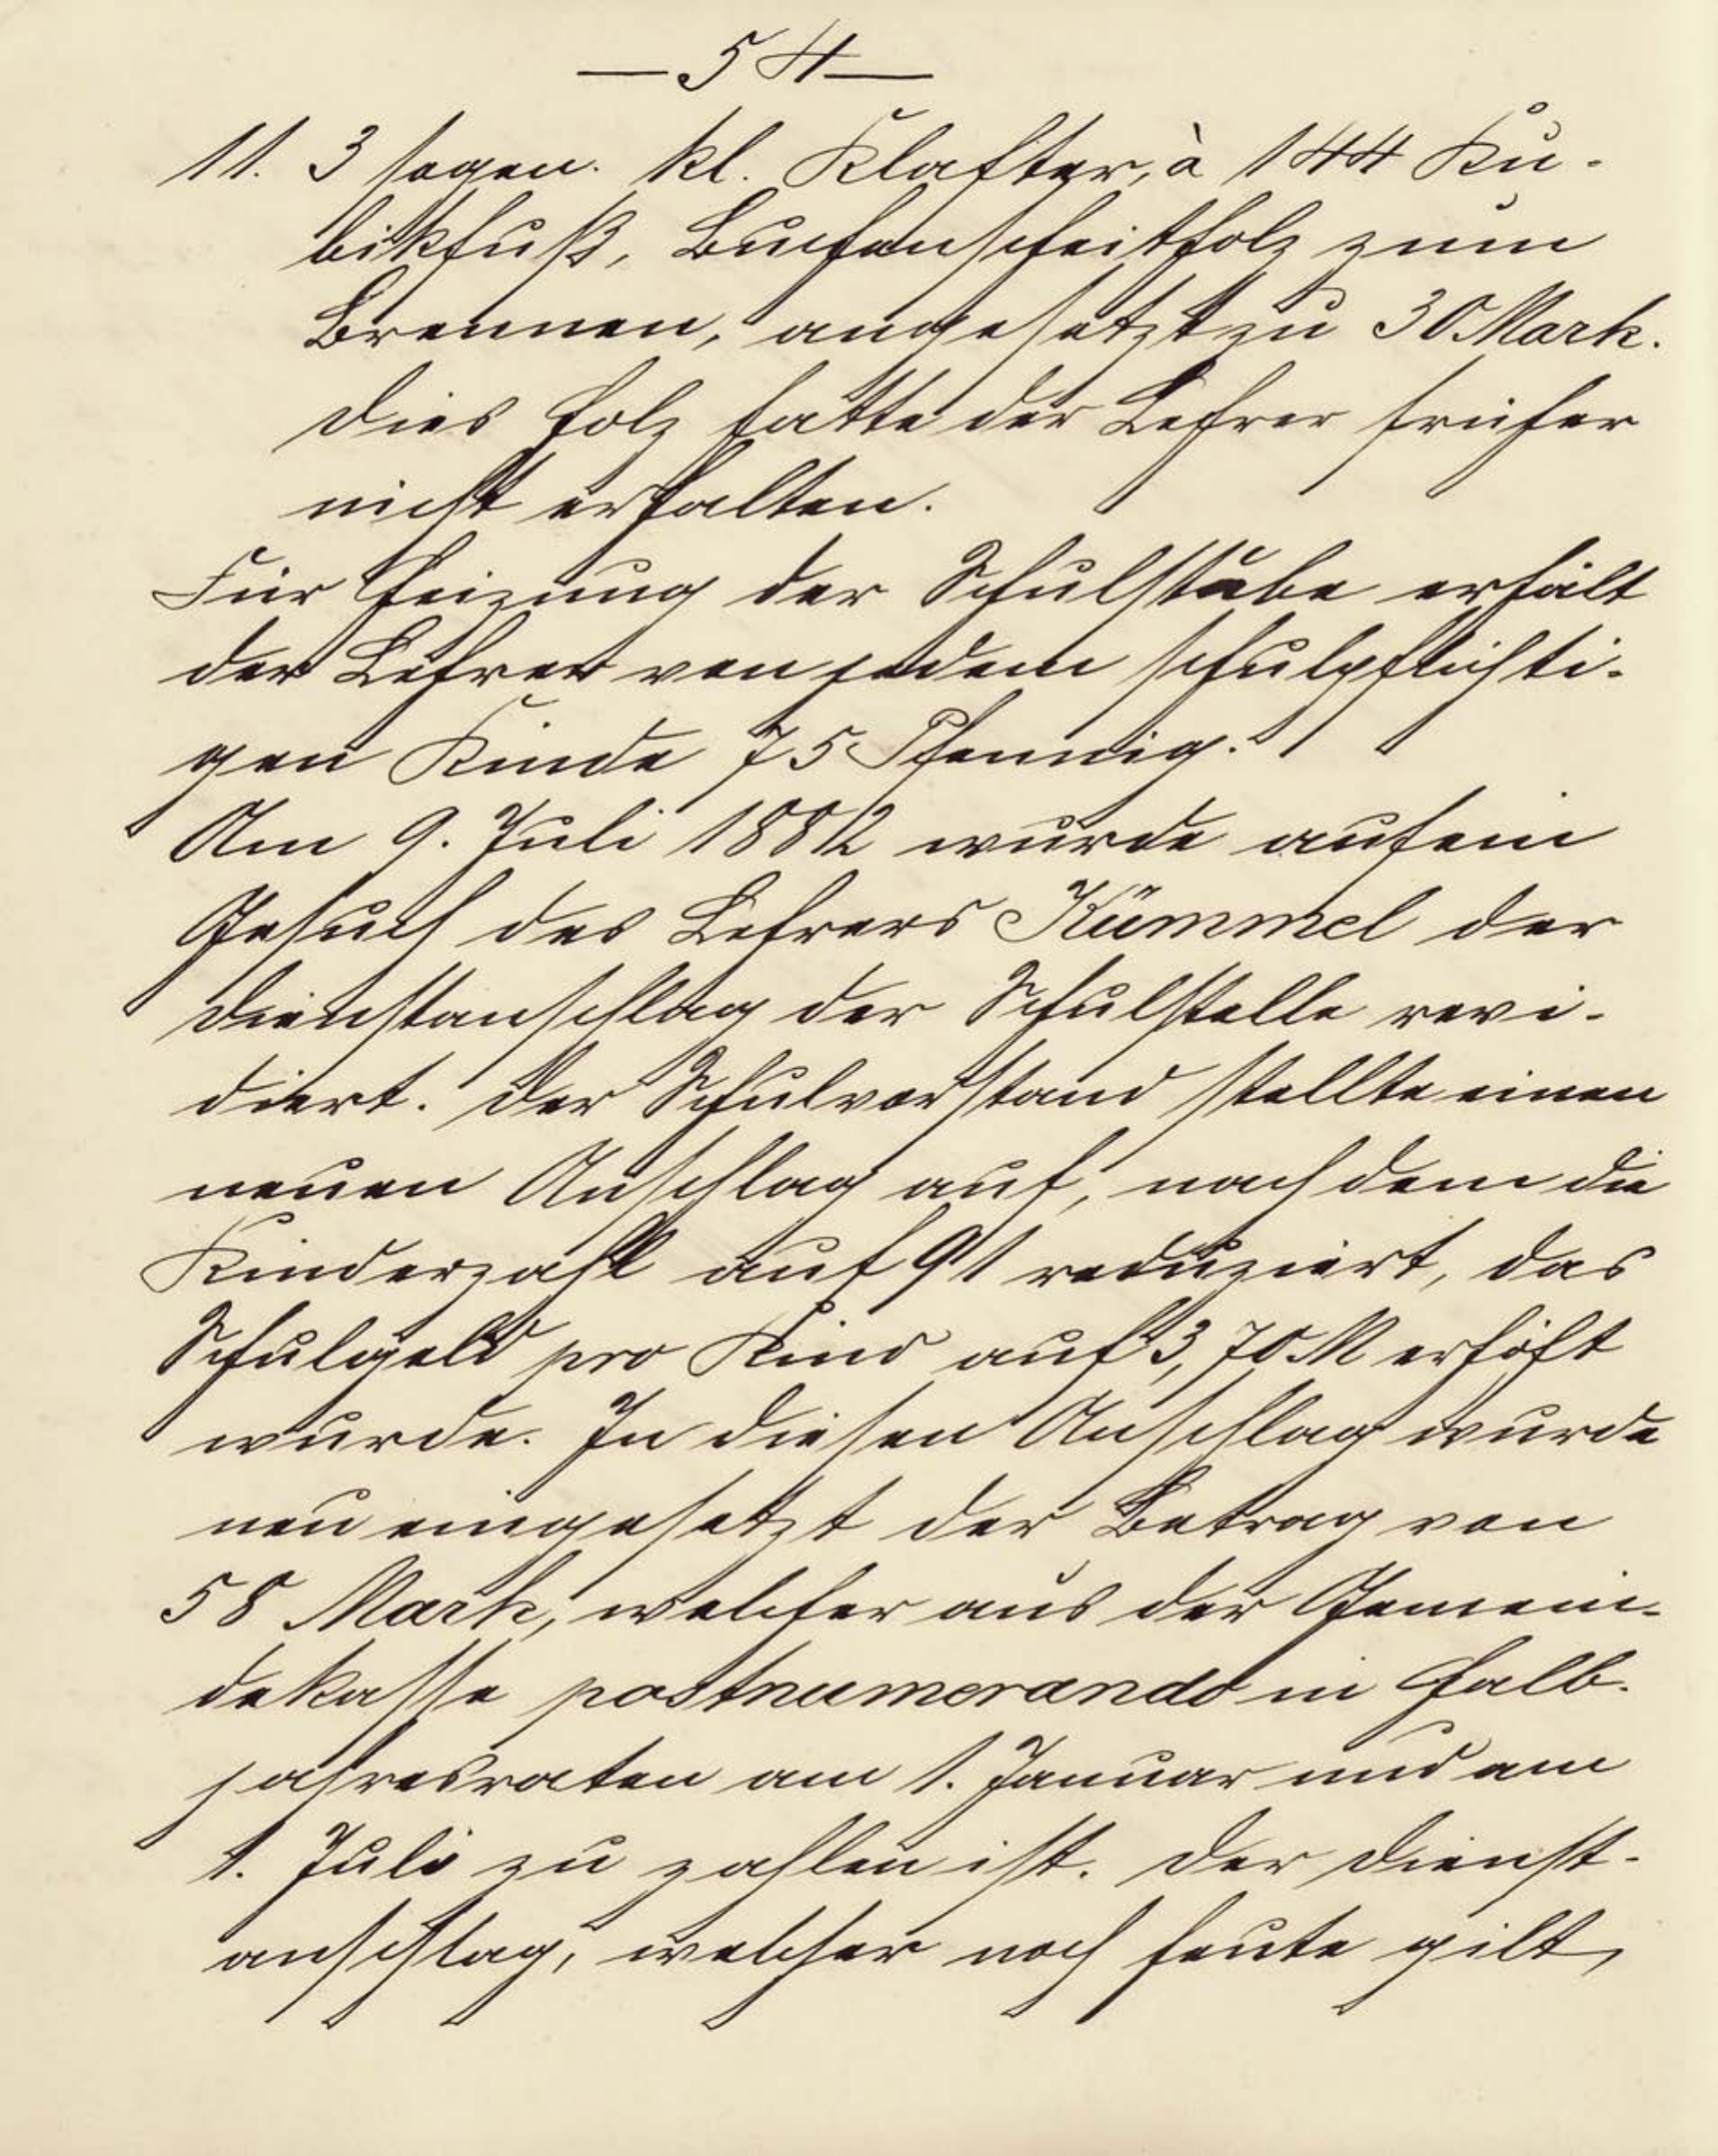 — 54 —
11. 3 sogen. kl. Klafter, à 144 Ku-
bikfuß, Buchenscheitholz zum
Brennen, angesetzt zu 30 Mark.
Dies Holz hatte der Lehrer früher
nicht erhalten.
Für Heizung der Schulstube erhält
der Lehrer von jedem schulpflichti-
gen Kinde 75 Pfennig.
Am 9. Juli 1882 wurde auf ein
Gesuch des Lehrers Kümmel der
Dienstanschlag der Schulstelle revi-
diert. Der Schulvorstand stellte einen
neuen Anschlag auf, nach dem die
Kinderzahl auf 91 reduziert, das
Schulgeld pro Kind auf 3,70 M erhöht
wurde. In diesen Anschlag wurde
neu eingesetzt der Betrag von
58 Mark, welcher aus der Gemein-
dekasse postnumerando in Halb-
jahresraten am 1. Januar und am
1. Juli zu zahlen ist. Der Dienst-
anschlag, welcher noch heute gilt,